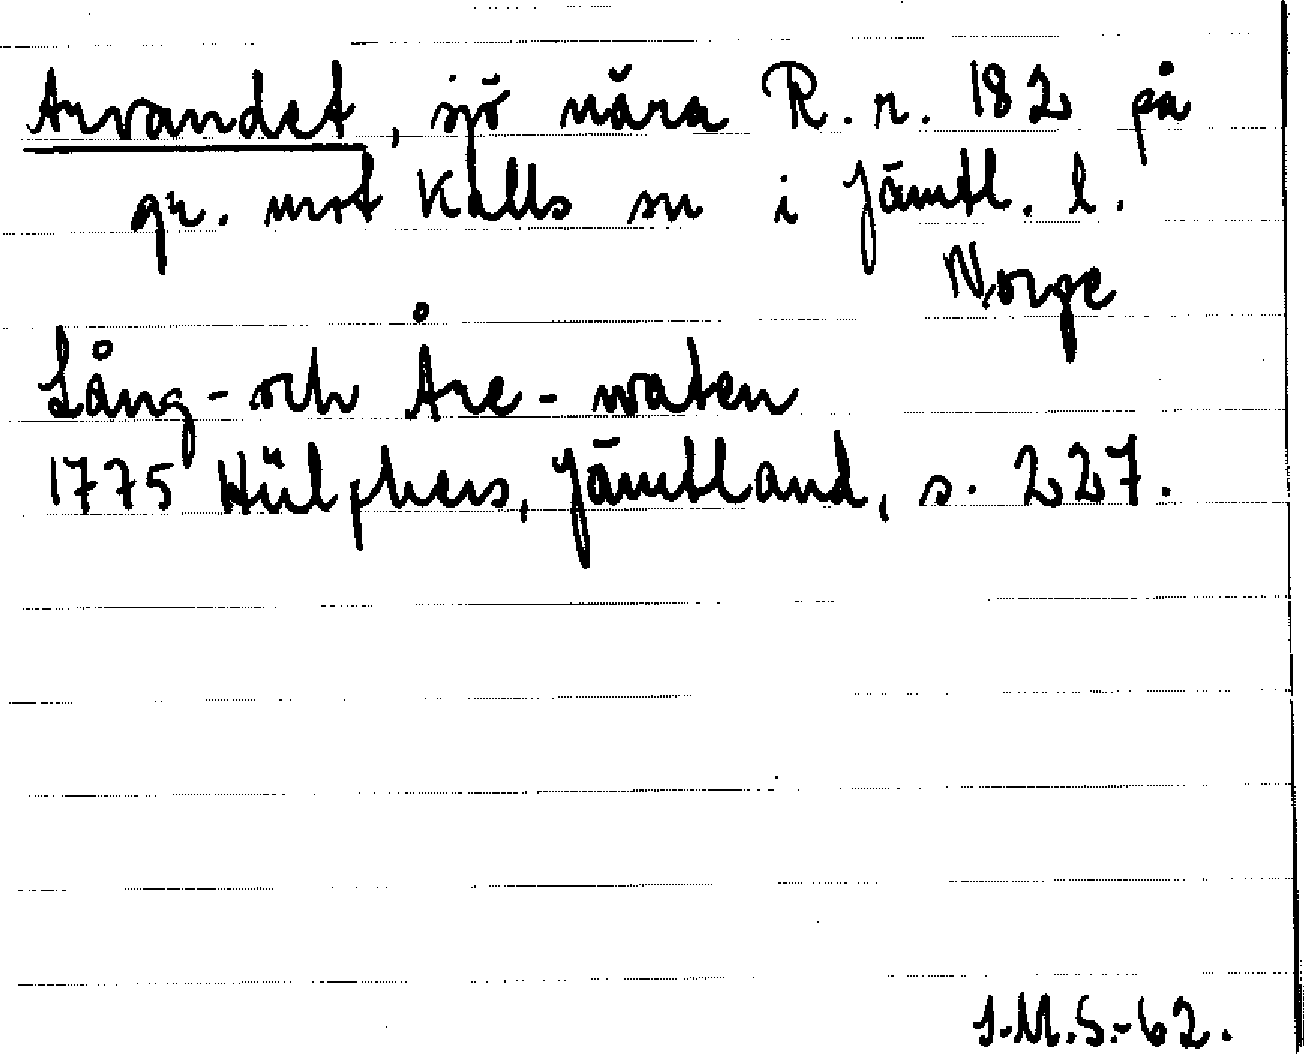 Arvandet, sjö nära R. r. 182 på
gr. mot Kalls sn i Jämtl. l.
Norge
Lång- och Åre-waten
1775 Hülphers, Jämtland, s. 227.
I.M.S.-62.